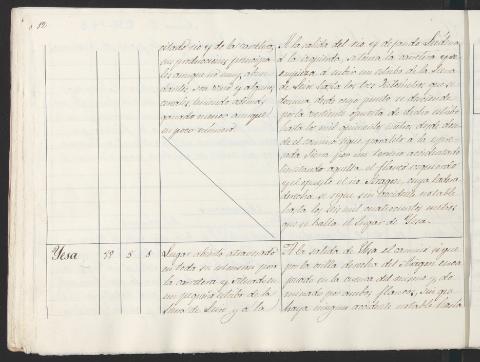 12
citado rio y de la carretera,
sus producciones principa-
les aunque no muy abun-
dantes, son vino y algunos
cereales, teniendo además
ganado menor aunque
en poco número.
A la salida del rio y dejando
a la izquierda, se toma la carretera y se
empieza a subir un estribo de la Sierra
de Leire hasta los tres kilómetros que se
domina, desde cuyo punto se desciende
por la vertiente opuesta de dicho estribo
hasta los mil quinientos metros, desde don-
de el camino sigue paralelo a la expre-
sada Sierra por un terreno accidentado
limitando aquella el flanco izquierdo
y el opuesto el rio Aragon, cuya ladera
derecha se sigue sin accidente notable
hasta los seis mil cuatrocientos metros
que se halla el Lugar de Yesa.
Yesa 5 8
Lugar abierto atravesado
en toda su extension por
la carretera y situado en
un pequeño estribo de la
Sierra de Leire y a la
A la salida de Yesa el camino sigue
por la orilla derecha del Aragon enca-
jonado en la cuenca del mismo y do-
minado por ambos flancos, sin que
haya ningun accidente notable hasta